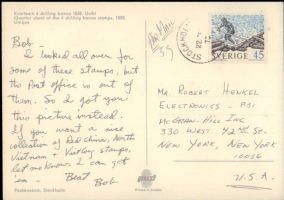 Kvartsark 4 skilling banco 1855. Unikt
Quarter sheet of the 4 skilling banco stamps, 1855.
Unique
Bob-
I looked all over for
some of these stamps, but
the Post Office is out of
them. So I got you
this picture instead.
If you want a nice
collection of Red China, North
Vietnam + Vietboy stamps,
let me know. I can get
'em. - Best
Bob
Postmuseum, Stockholm
STOCKHOLM
SVERIGE 45
Mr Robert Henkel
Electronics - PSI
McGraw-Hill Inc
330 West. 42nd St.
New York, New York
10036
U.S.A.